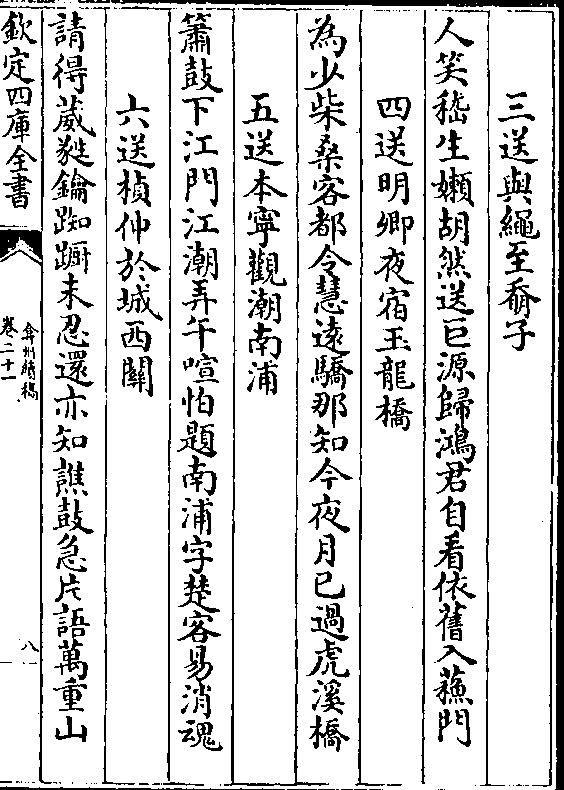 三送與繩至奣子
人笑嵇生嬾胡然送巨源歸鴻君自看依舊入蘓門
四送明卿夜宿玉龍橋
為少柴桑客都令慧遠驕那知今夜月已過虎溪橋
五送本寧觀潮南浦
簫鼓下江門江潮弄午喧怕題南浦字楚客易消魂
六送楨仲於城西關
請得葳蕤鑰踟蹰未忍還亦知譙鼓急片語萬重山
欽定四庫全書
弇州續稿
卷二十一
八